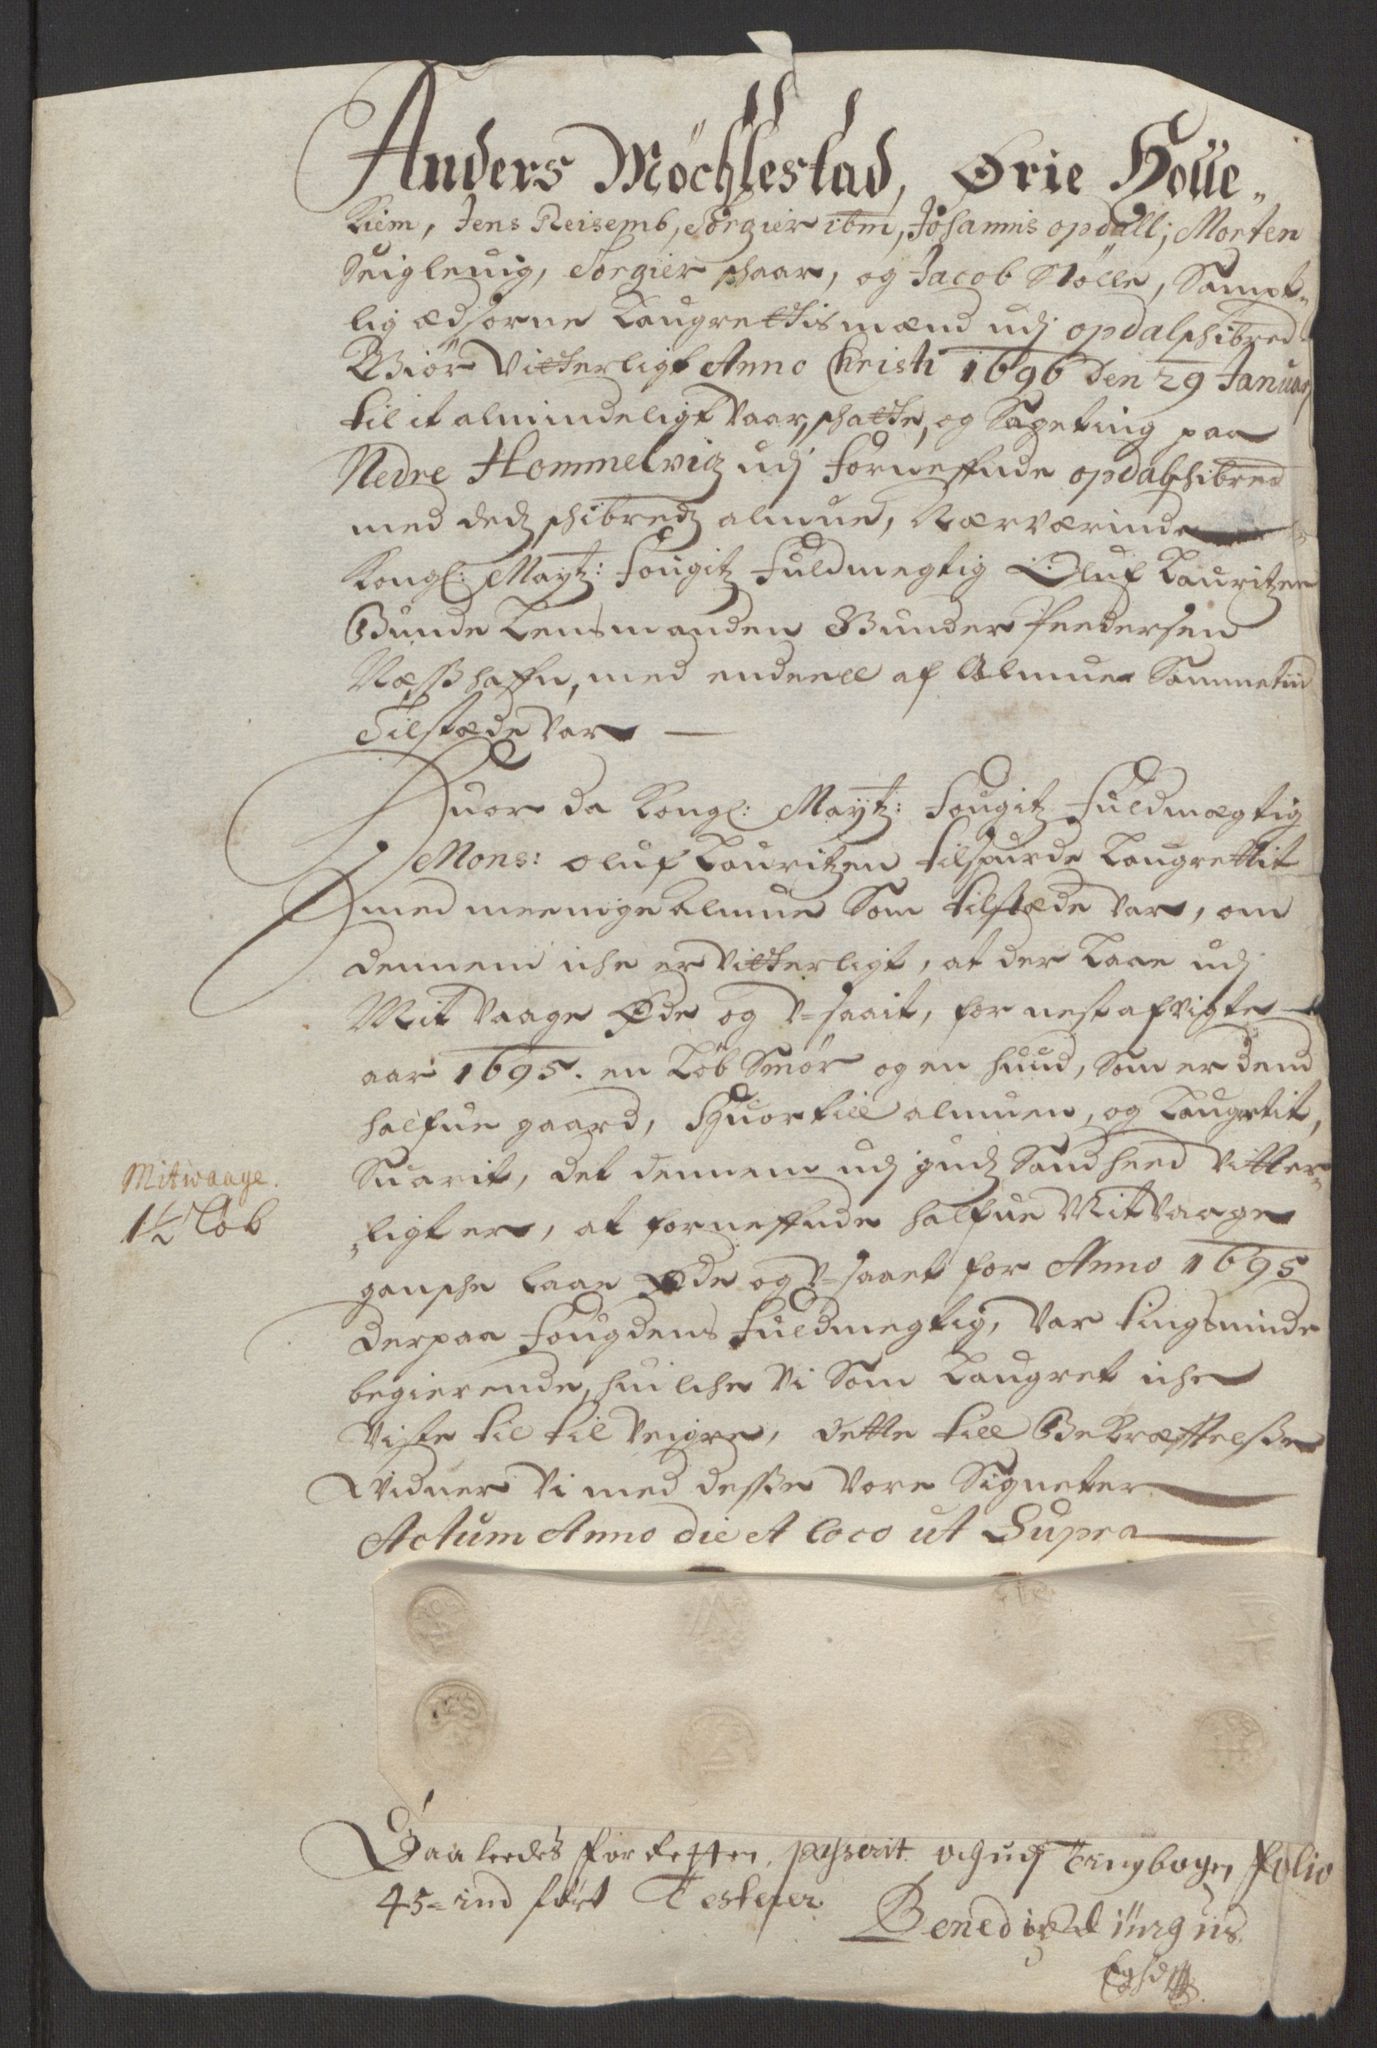 Anders Möchlestad, Ørie Houe-
Kiem, Jens Reisemb, Torgier ibm, Johannis opdall, Morten
Seiglevig, Torgier schaar, og Jacob Nølle, Sampt-
lig ædsorne Laugrettismænd udj opdalschibred
Giør Vitterligt Anno Christi 1696 den 29 Januarj
til it almindeligt Vaar, schatte, og Sageting paa
Nedre Hommelvig udj forneffnde opdalschibred
med dedz schibredz almue, Nærværinde
Kongl: Maytz: fougitz fuldmegtig Oluf Lauritzen
Bunde Lensmanden Gunder Pedersen
Næsshaffn, med endeell af Almue Sammetid
Tilstæde Var
Huor da Kongl: Maytz: fougitz fuldmægtig
Mons: Oluf Lauritzen tilspurde Laugrettit
med meenige Almue Som tilstæde var, om
dennem iche er Vitterligt, at der Laae udj
Mit Vaage Øde og V-saait, for nest afvigte
aar 1695. en Løb Smør og en huud, Som er dend
halfue gaard, Huortill almuen, og Laugrtit,
Suarit, det dennem udj gudz Sandheed Vitter-
ligt er, at forneffnde halfue MitVaage
gansche laae Øde og V-saaet for Anno 1695
derpaa fougdens fuldmegtig, Var tingsvinde
begierende, huilche Vi Som Laugret iche
Viste til til Veigre, dette till Bekræfftelsse
Vidner Vi med desse Vore Signeter
Actum Anno die et loco ut Supra
Mitwaage.
1½ Løb
Saaleedes for Retten passerit och udj Tingbogen folio
45- ind fört Testerer
Benedict Jürgens